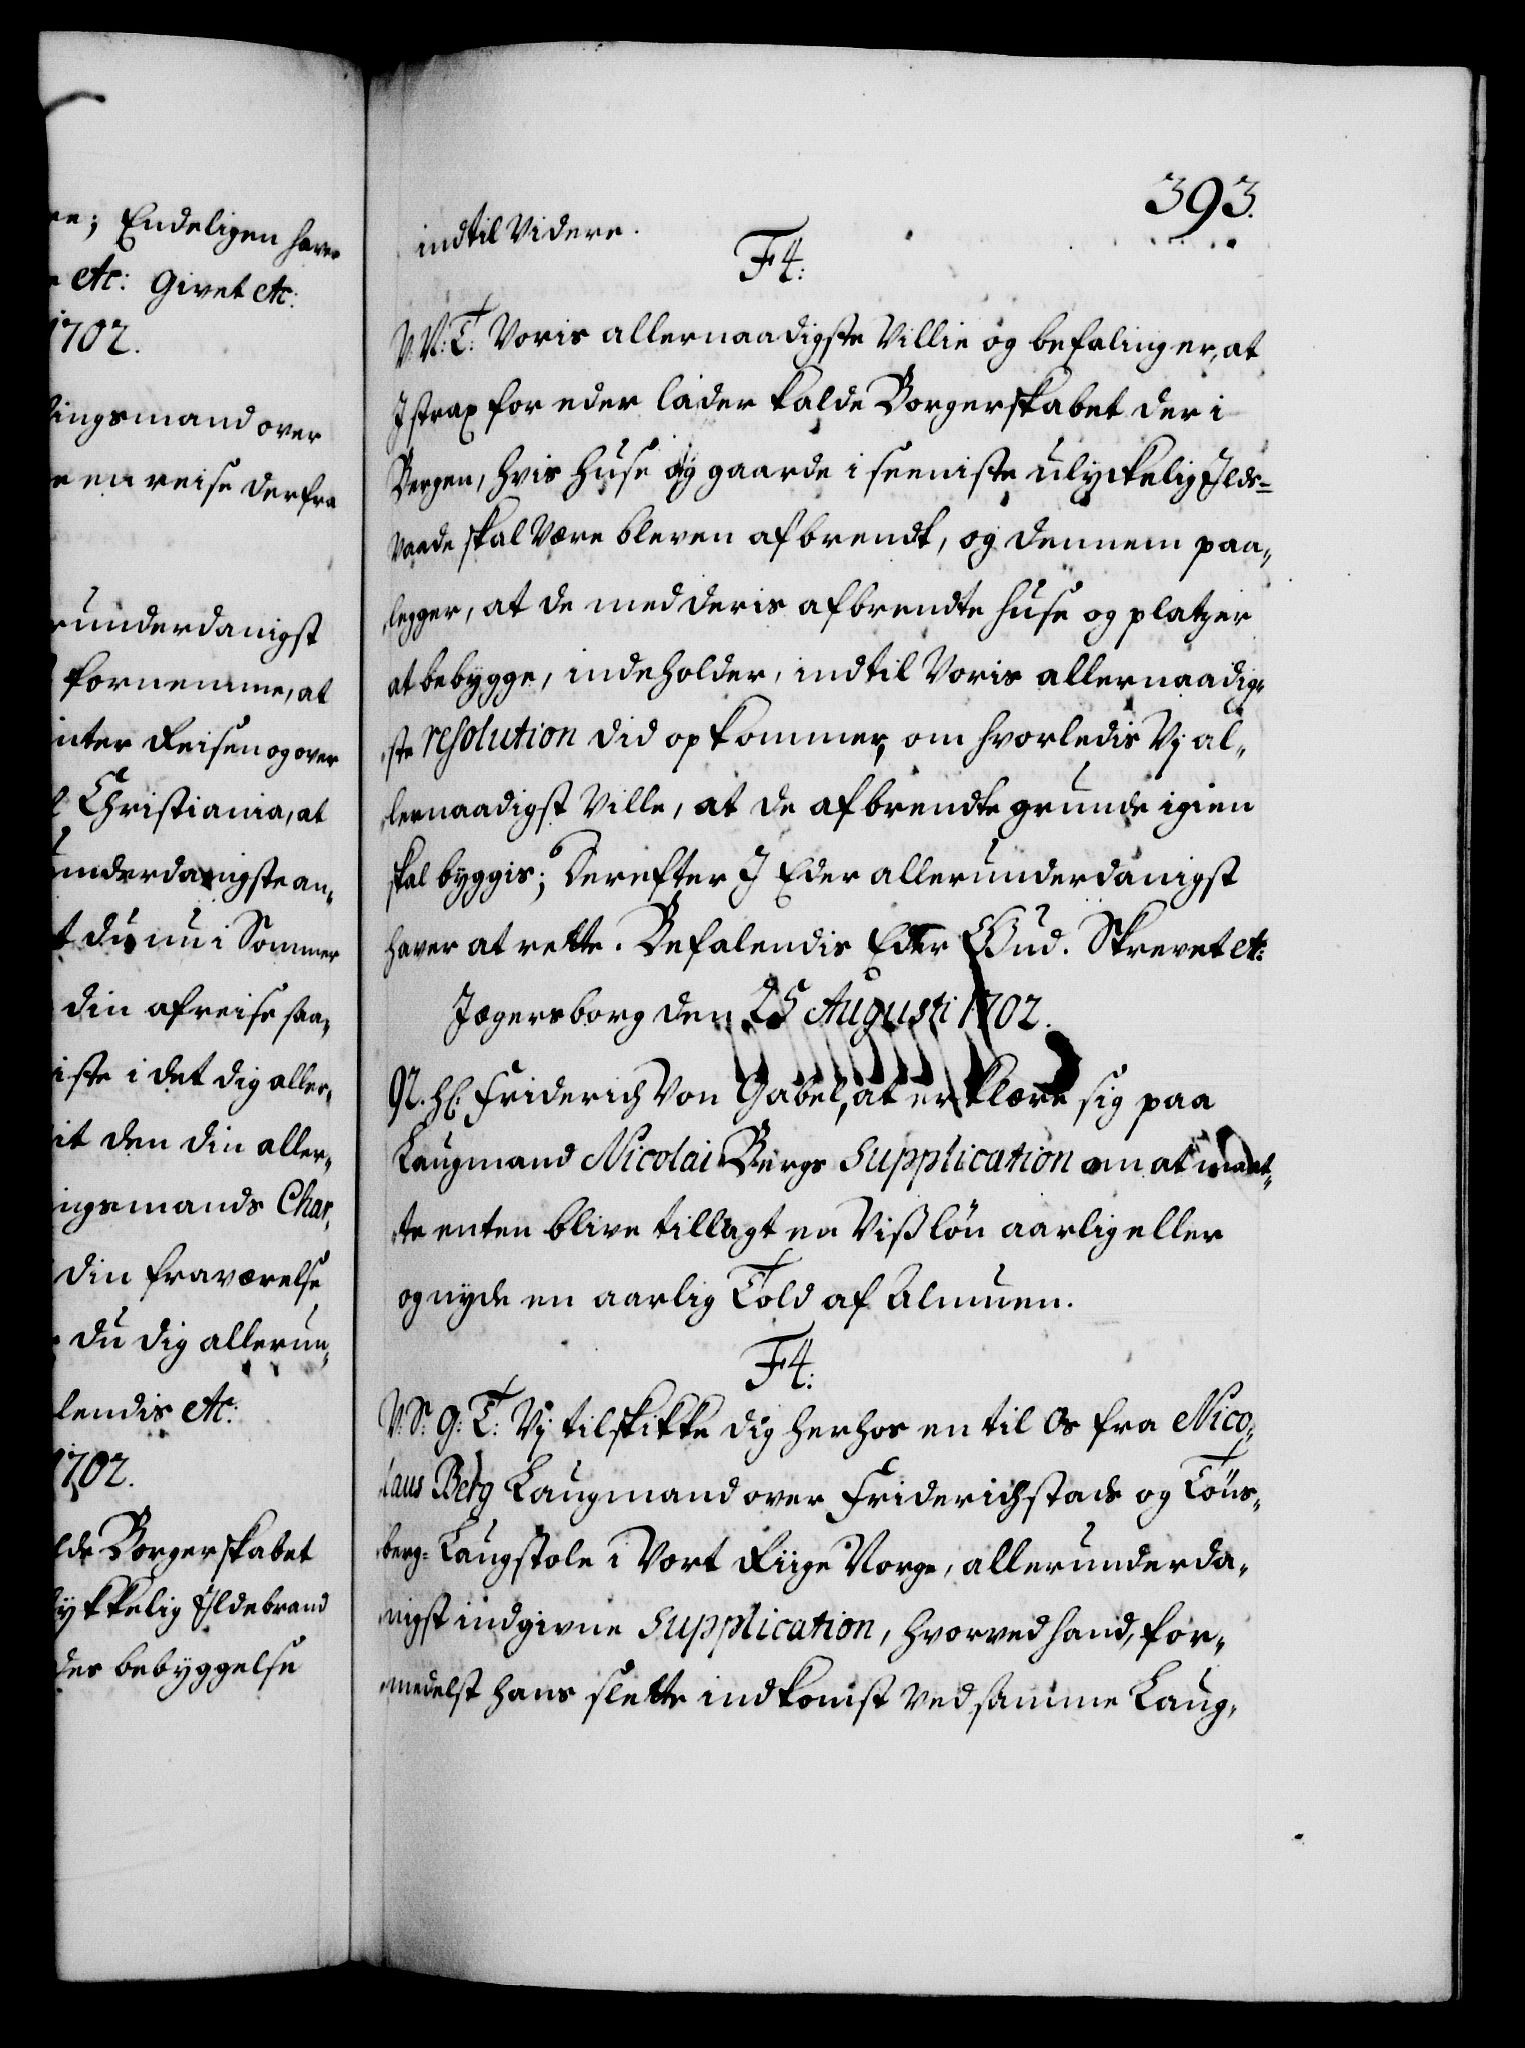 re; Endeligen haver
etc: Givet etc:
1702.
lingsmand over
e en reise derfra
runderdanigst
fornemme, at
inter Reisen og over
l Christiania, at
underdanigste an-
t du nu i Sommer
din afreise saa-
iste i det dig aller-
it den din aller-
ingsmands Char-
din fraværelse
du dig allerun-
lendis etc:
1702.
lde Borgerskabet
lykkelig Ildebrand
des bebyggelse
393.
indtil Videre.
F4:
V. N: T: Voris allernaadigste Villie og befaling er, at
I strax for eder lader kalde Borgerskabet der i
Bergen, hvis Huse og gaarde i seeniste ulyckelig Ilds-
vaade skal Være bleven afbrendt, og dennem paa-
legger, at de med deris afbrendte huse og platzer
at bebygge, indeholder, indtil Voris allernaadig-
ste resolution did op kommer, om hvorledis Vj al-
lernaadigst Ville, at de afbrendte grunde igien
skal byggis; Derefter I Eder allerunderdanigst
haver at rette. Befalendis Eder Gud. Skrevet etc:
Jægersborg den 25 Augusti 1702.
N. H: Friderich Von Gabel, at erklære sig paa
Laugmand Nicolai Bergs Supplication om at maat-
te enten blive tillagt en Viß løn aarlig eller
og nyde en aarlig Told af Almuen.
F4:
V. S. G: T: Vj tilskikke dig herhos en til Os fra Nico-
laus Berg Laugmand over Friderichstads og Tøns-
berg- Laugstole i Vort Riige Norge, allerunderda-
nigst indgivne Supplication, hvorved hand, for-
medelst hans slette indkomst ved samme Laug-